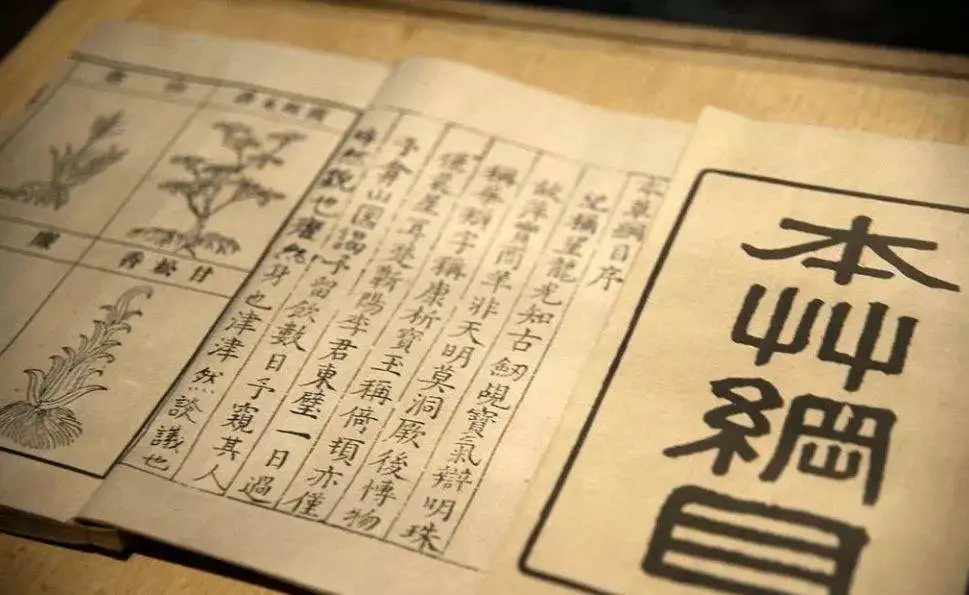 本艸綱目
本草綱目序
稱星龍光知古劒覘寶氣辯明珠
故萍實商羊非天明莫洞厥後博物
稱華辯字稱康析寶玉稱倚頓亦僅
僅晨星耳楚蘄陽李君東壁一日過
予弇山園謁予留飲數日予窺其人
睟然貌也癯然身也津津然談議也
甘松香